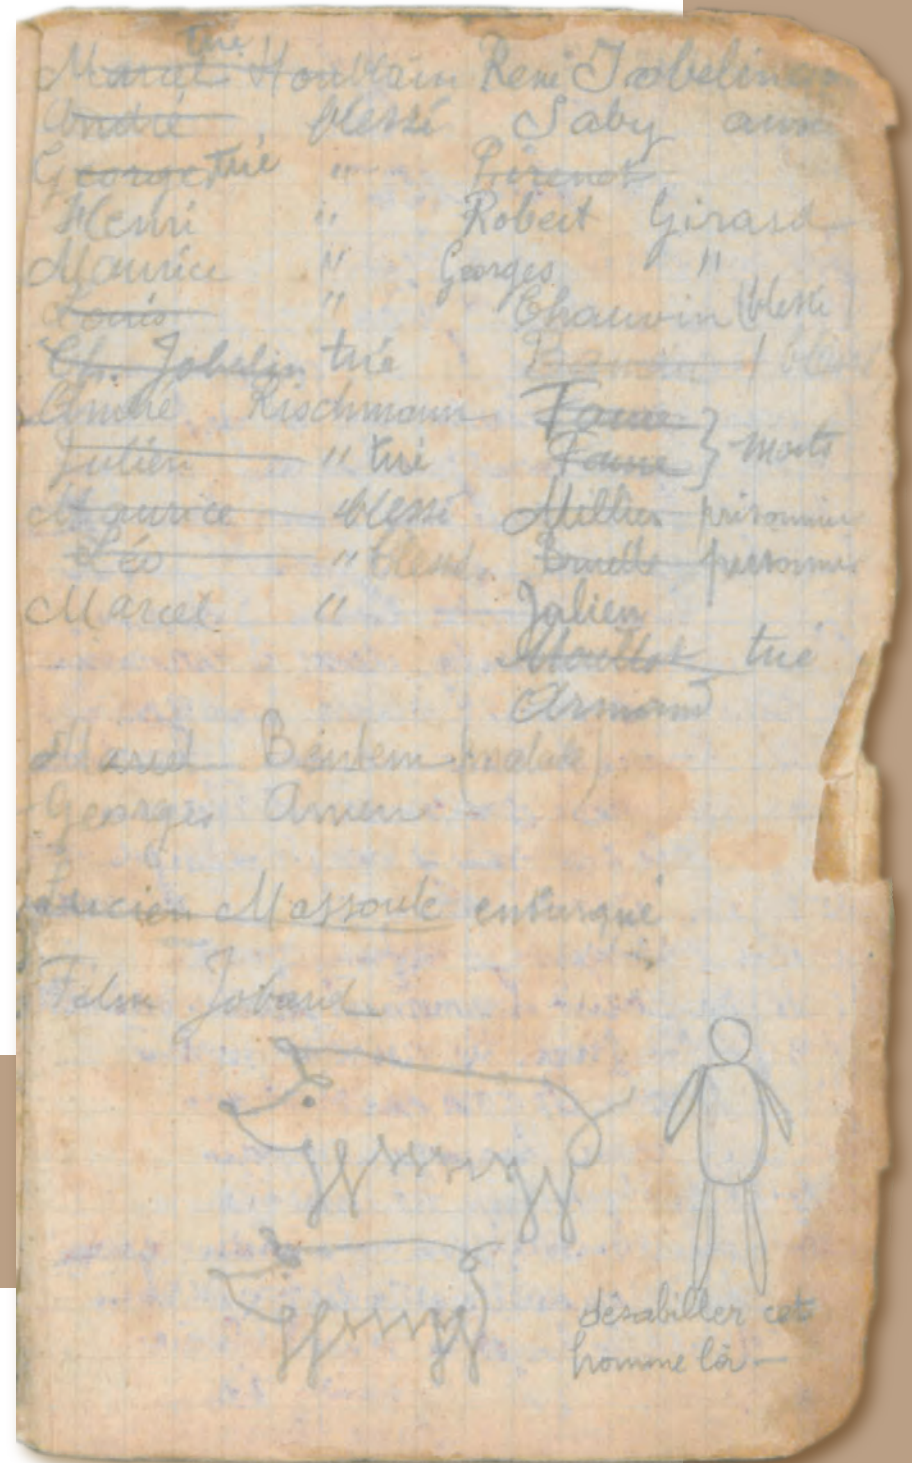 tué
Marcel Houblain René Jobelin
André blessé Saby
George tué " Pirenet
Henri " Robert Girard
Maurice " Georges "
Louis " Chauvin (blessé)
Ch. Jobelin tué blessé
André Kischmann Faure
Julien " tué Faure } morts
Maurice blessé Millier prisonnier
Léo " blessé. Bruelle prisonnier
Marcel " Julien
Moullot tué
Armand
Marcel Bentem (malade)
Georges Amen
Lucien Massoule embusqué
Film Jobard
désabiller cet
homme là —